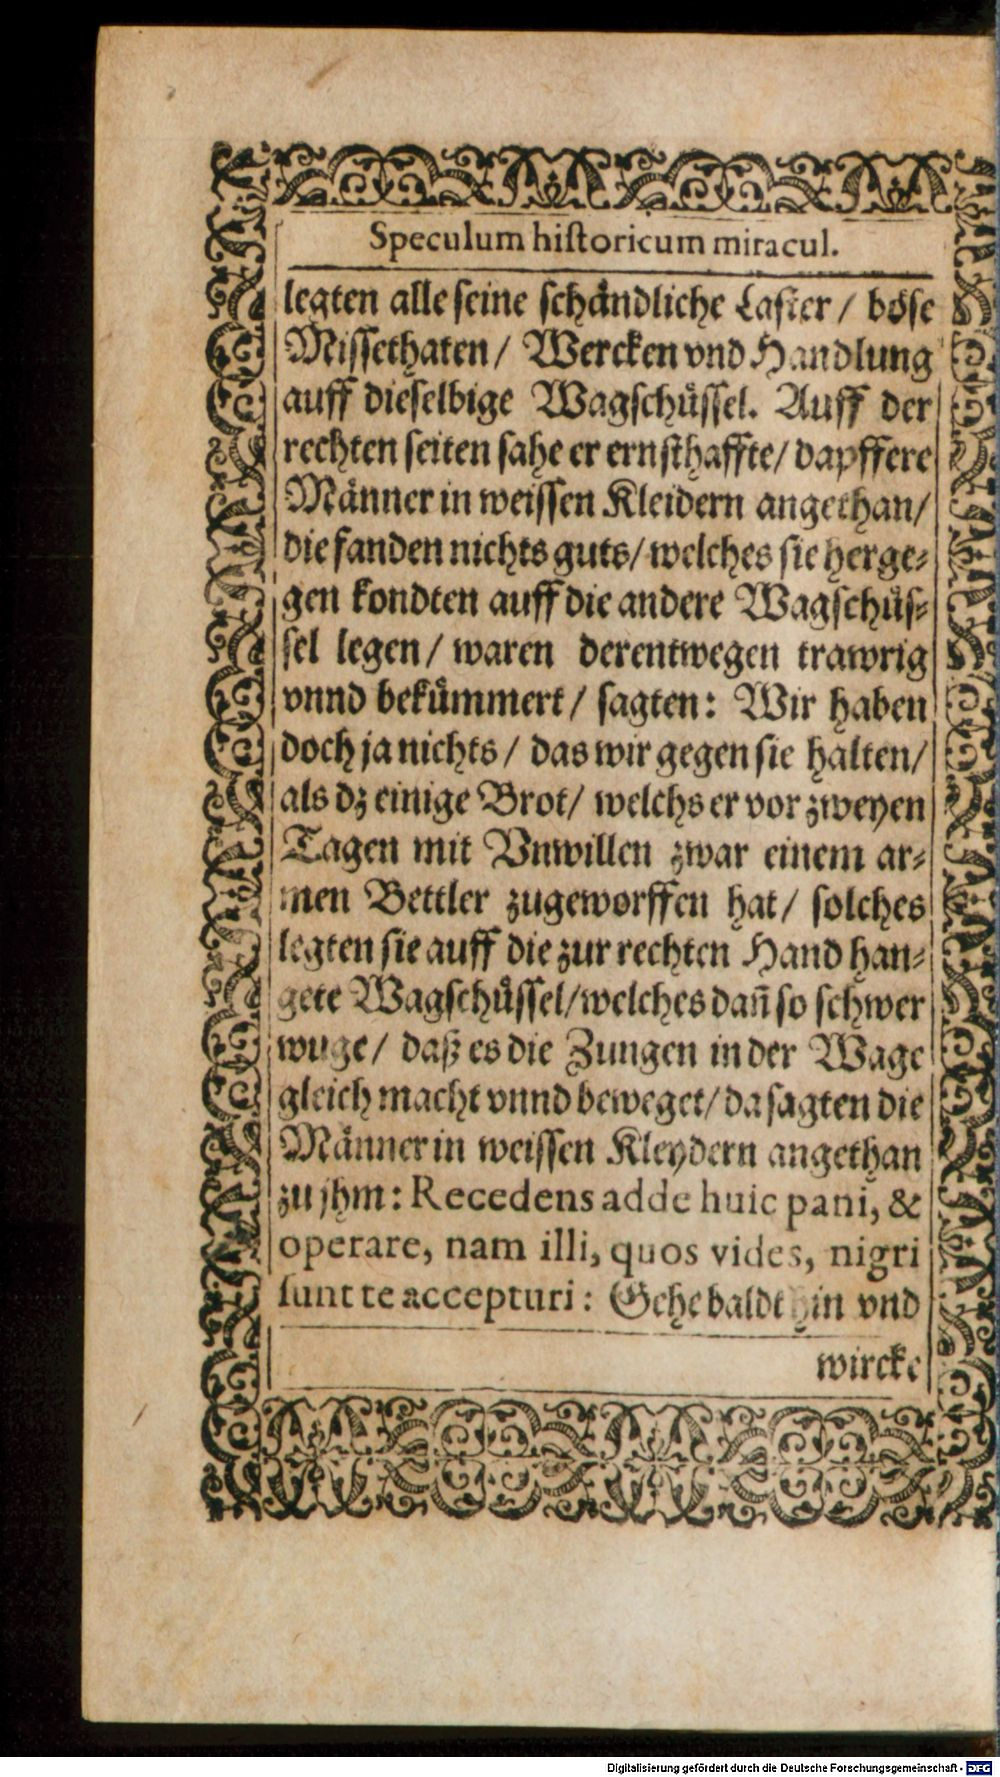 Speculum historicum miracul.
legten alle seine schändliche Laster / böse
Missethaten / Wercken vnd Handlung
auff dieselbige Wagschüssel. Auff der
rechten seiten sahe er ernsthaffte / dapffere
Männer in weissen Kleidern angethan /
die fanden nichts guts / welches sie herge-
gen kondten auff die andere Wagschüs-
sel legen / waren derentwegen trawrig
vnnd bekümmert / sagten: Wir haben
doch ja nichts / das wir gegen sie halten /
als dz einige Brot / welchs er vor zweyen
Tagen mit Vnwillen zwar einem ar-
men Bettler zugeworffen hat / solches
legten sie auff die zur rechten Hand han-
gete Wagschüssel / welches dañ so schwer
wuge / daß es die Zungen in der Wage
gleich macht vnnd beweget / da sagten die
Männer in weissen Kleydern angethan
zu jhm: Recedens adde huic pani, &
operare, nam illi, quos vides, nigri
sunt te accepturi: Gehe baldt hin vnd
wircke
Digitalisierung gefördert durch die Deutsche Forschungsgemeinschaft - DFG